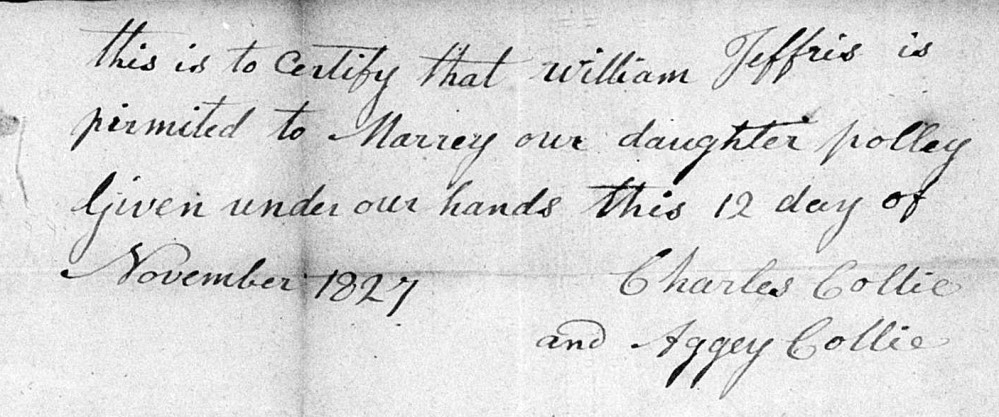 this is to Certify that william Jeffris is
pirmited to Marrey our daughter polley
Given under our hands this 12 day of
November 1827 Charles Collie
and Aggey Collie